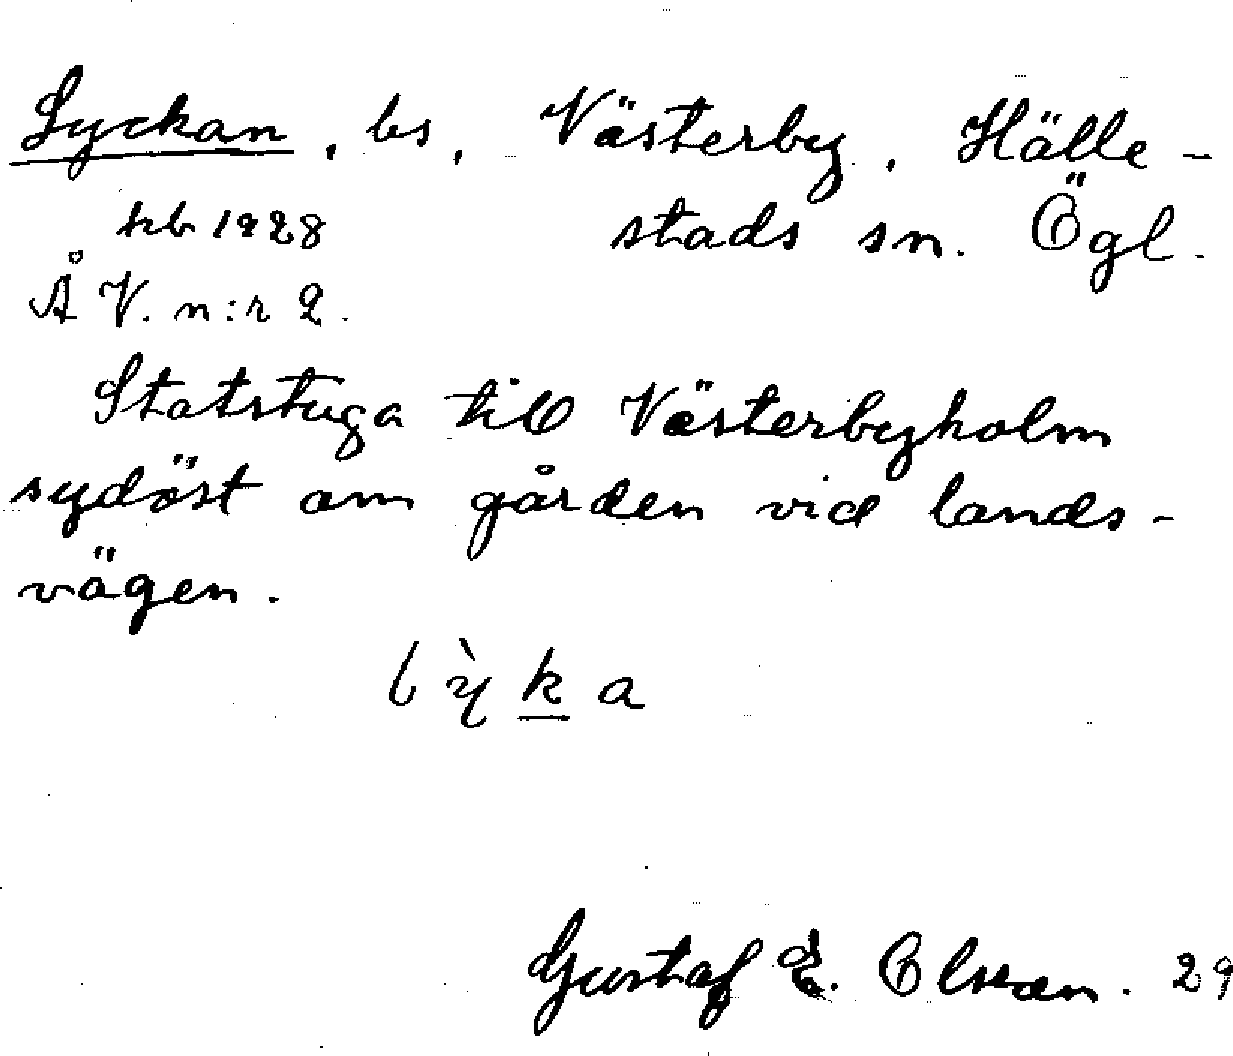 Lyckan, bs, Västerby, Hälle-
kb 1928 stads sn. Ögl.
ÅV. n:r 2.
Statstuga till Västerbyholm
sydöst om gården vid lands-
vägen.
lỳka
Gustaf E. Olsson. 29